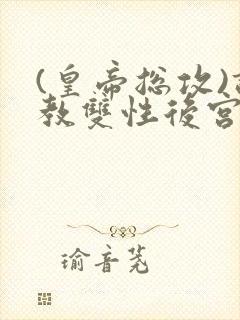 (皇帝総攻)
教雙性後宮
瑜音